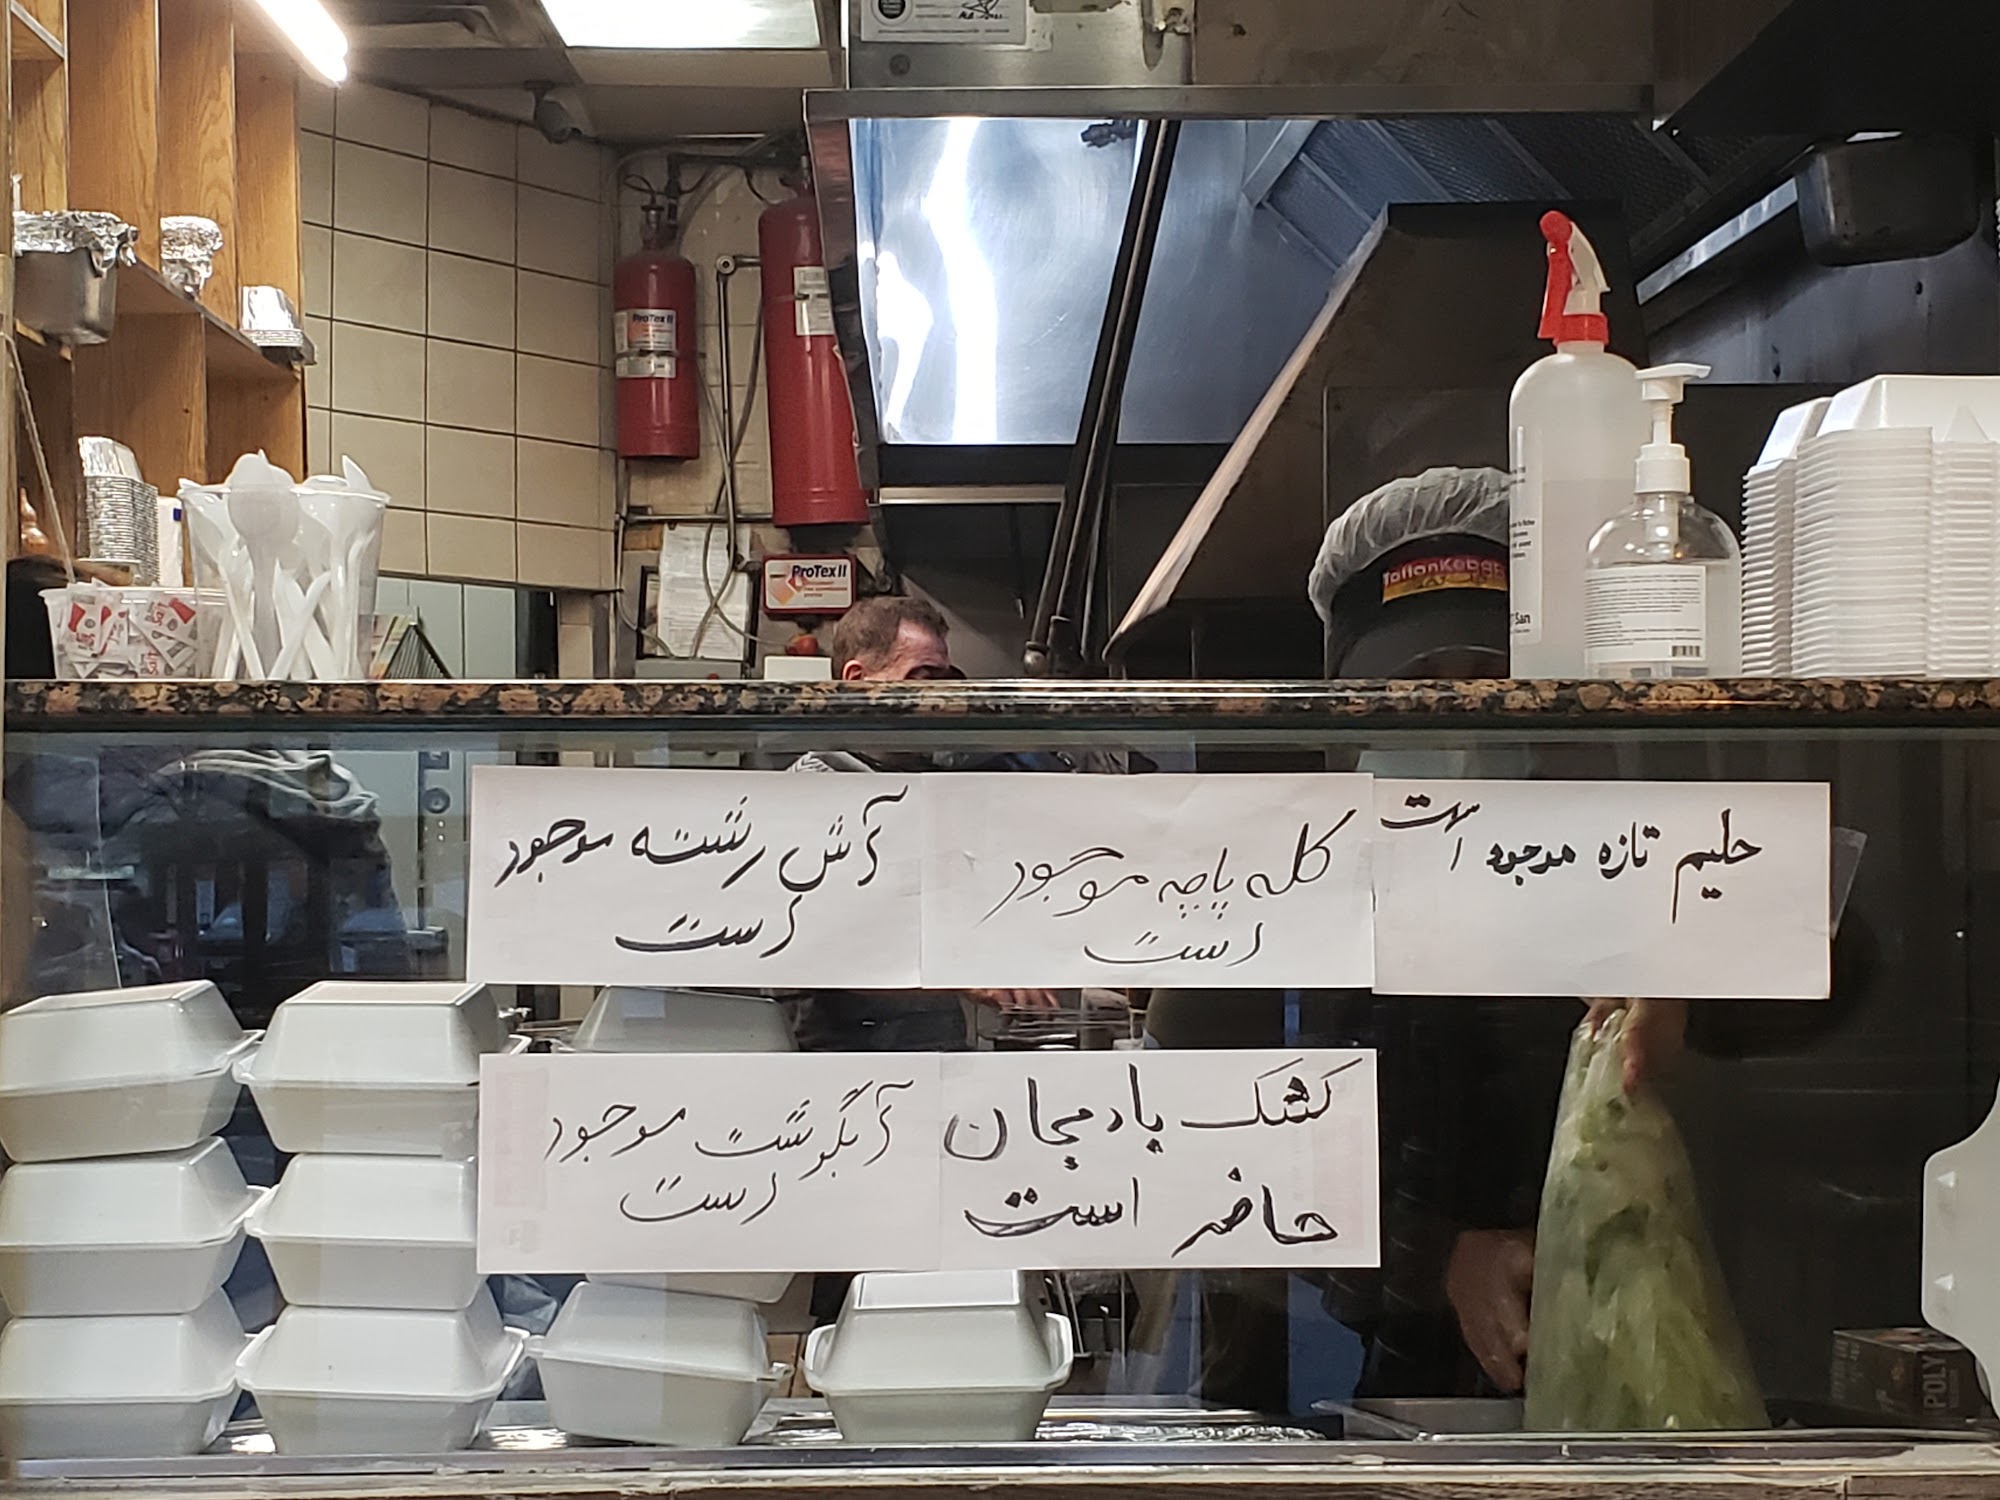 ProTex II
ProTex II
TaftanKebab
San
آش رشته موجود
است
کله پاچه موجود
است
حلیم تازه موجود است
آبگوشت موجود
است
کشک بادمجان
حاضر است
POLY